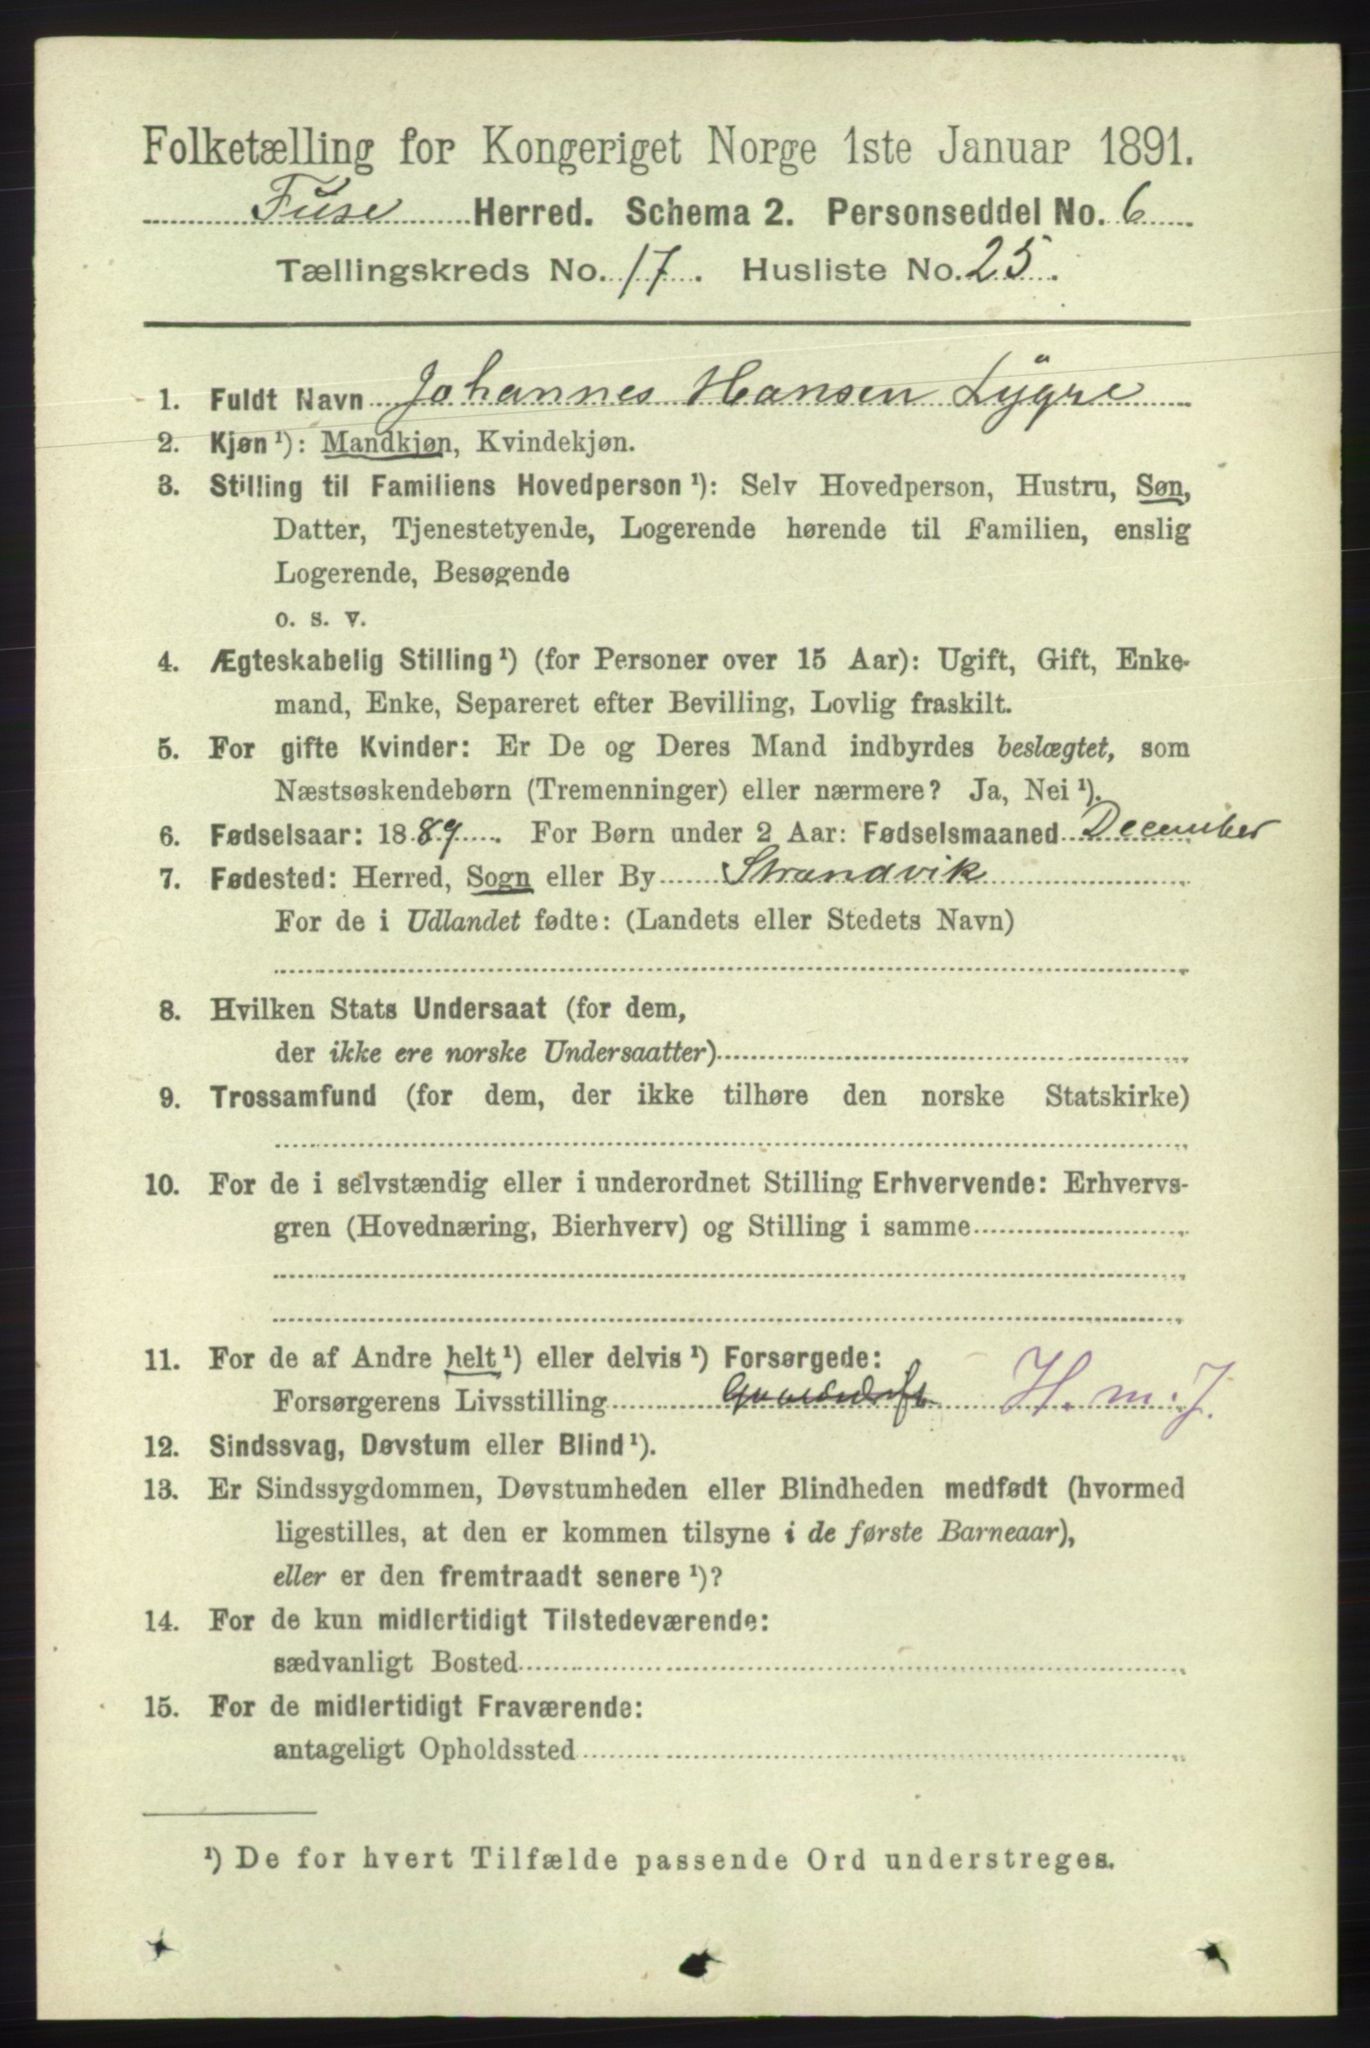 Folketælling for Kongeriget Norge 1ste Januar 1891.
Fuse Herred. Schema 2. Personseddel No. 6
Tællingskreds No. 17. Husliste No. 25.
1. Fuldt Navn Johannes Hansen Lÿgre
2. Kjøn ¹): Mandkjøn, Kvindekjøn.
3. Stilling til Familiens Hovedperson ¹): Selv Hovedperson, Hustru, Søn,
Datter, Tjenestetyende, Logerende hørende til Familien, enslig
Logerende, Besøgende
o. s. v.
4. Ægteskabelig Stilling ¹) (for Personer over 15 Aar): Ugift, Gift, Enke-
mand, Enke, Separeret efter Bevilling, Lovlig fraskilt.
5. For gifte Kvinder: Er De og Deres Mand indbyrdes beslægtet, som
Næstsøskendebørn (Tremenninger) eller nærmere? Ja, Nei ¹).
6. Fødselsaar: 1889. For Børn under 2 Aar: Fødselsmaaned December
7. Fødested: Herred, Sogn eller By Strandvik
For de i Udlandet fødte: (Landets eller Stedets Navn)
8. Hvilken Stats Undersaat (for dem,
der ikke ere norske Undersaatter)
9. Trossamfund (for dem, der ikke tilhøre den norske Statskirke)
10. For de i selvstændig eller i underordnet Stilling Erhvervende: Erhvervs-
gren (Hovednæring, Bierhverv) og Stilling i samme
11. For de af Andre helt ¹) eller delvis ¹) Forsørgede:
Forsørgerens Livsstilling H. m. J.
12. Sindssvag, Døvstum eller Blind ¹).
13. Er Sindssygdommen, Døvstumheden eller Blindheden medfødt (hvormed
ligestilles, at den er kommen tilsyne i de første Barneaar),
eller er den fremtraadt senere ¹)?
14. For de kun midlertidigt Tilstedeværende:
sædvanligt Bosted
15. For de midlertidigt Fraværende:
antageligt Opholdssted
¹) De for hvert Tilfælde passende Ord understreges.